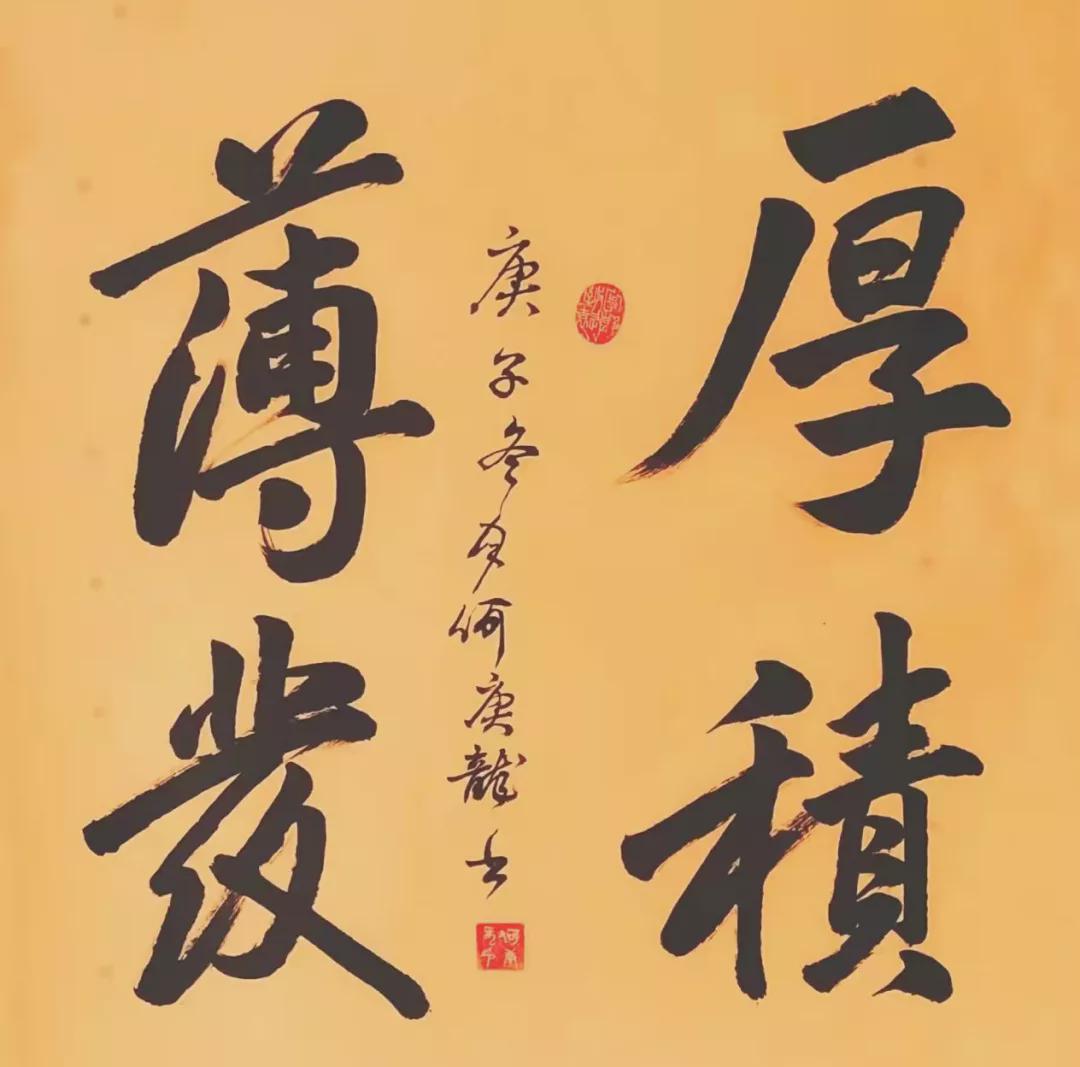 厚積
薄發
庚子冬月何庚龍书